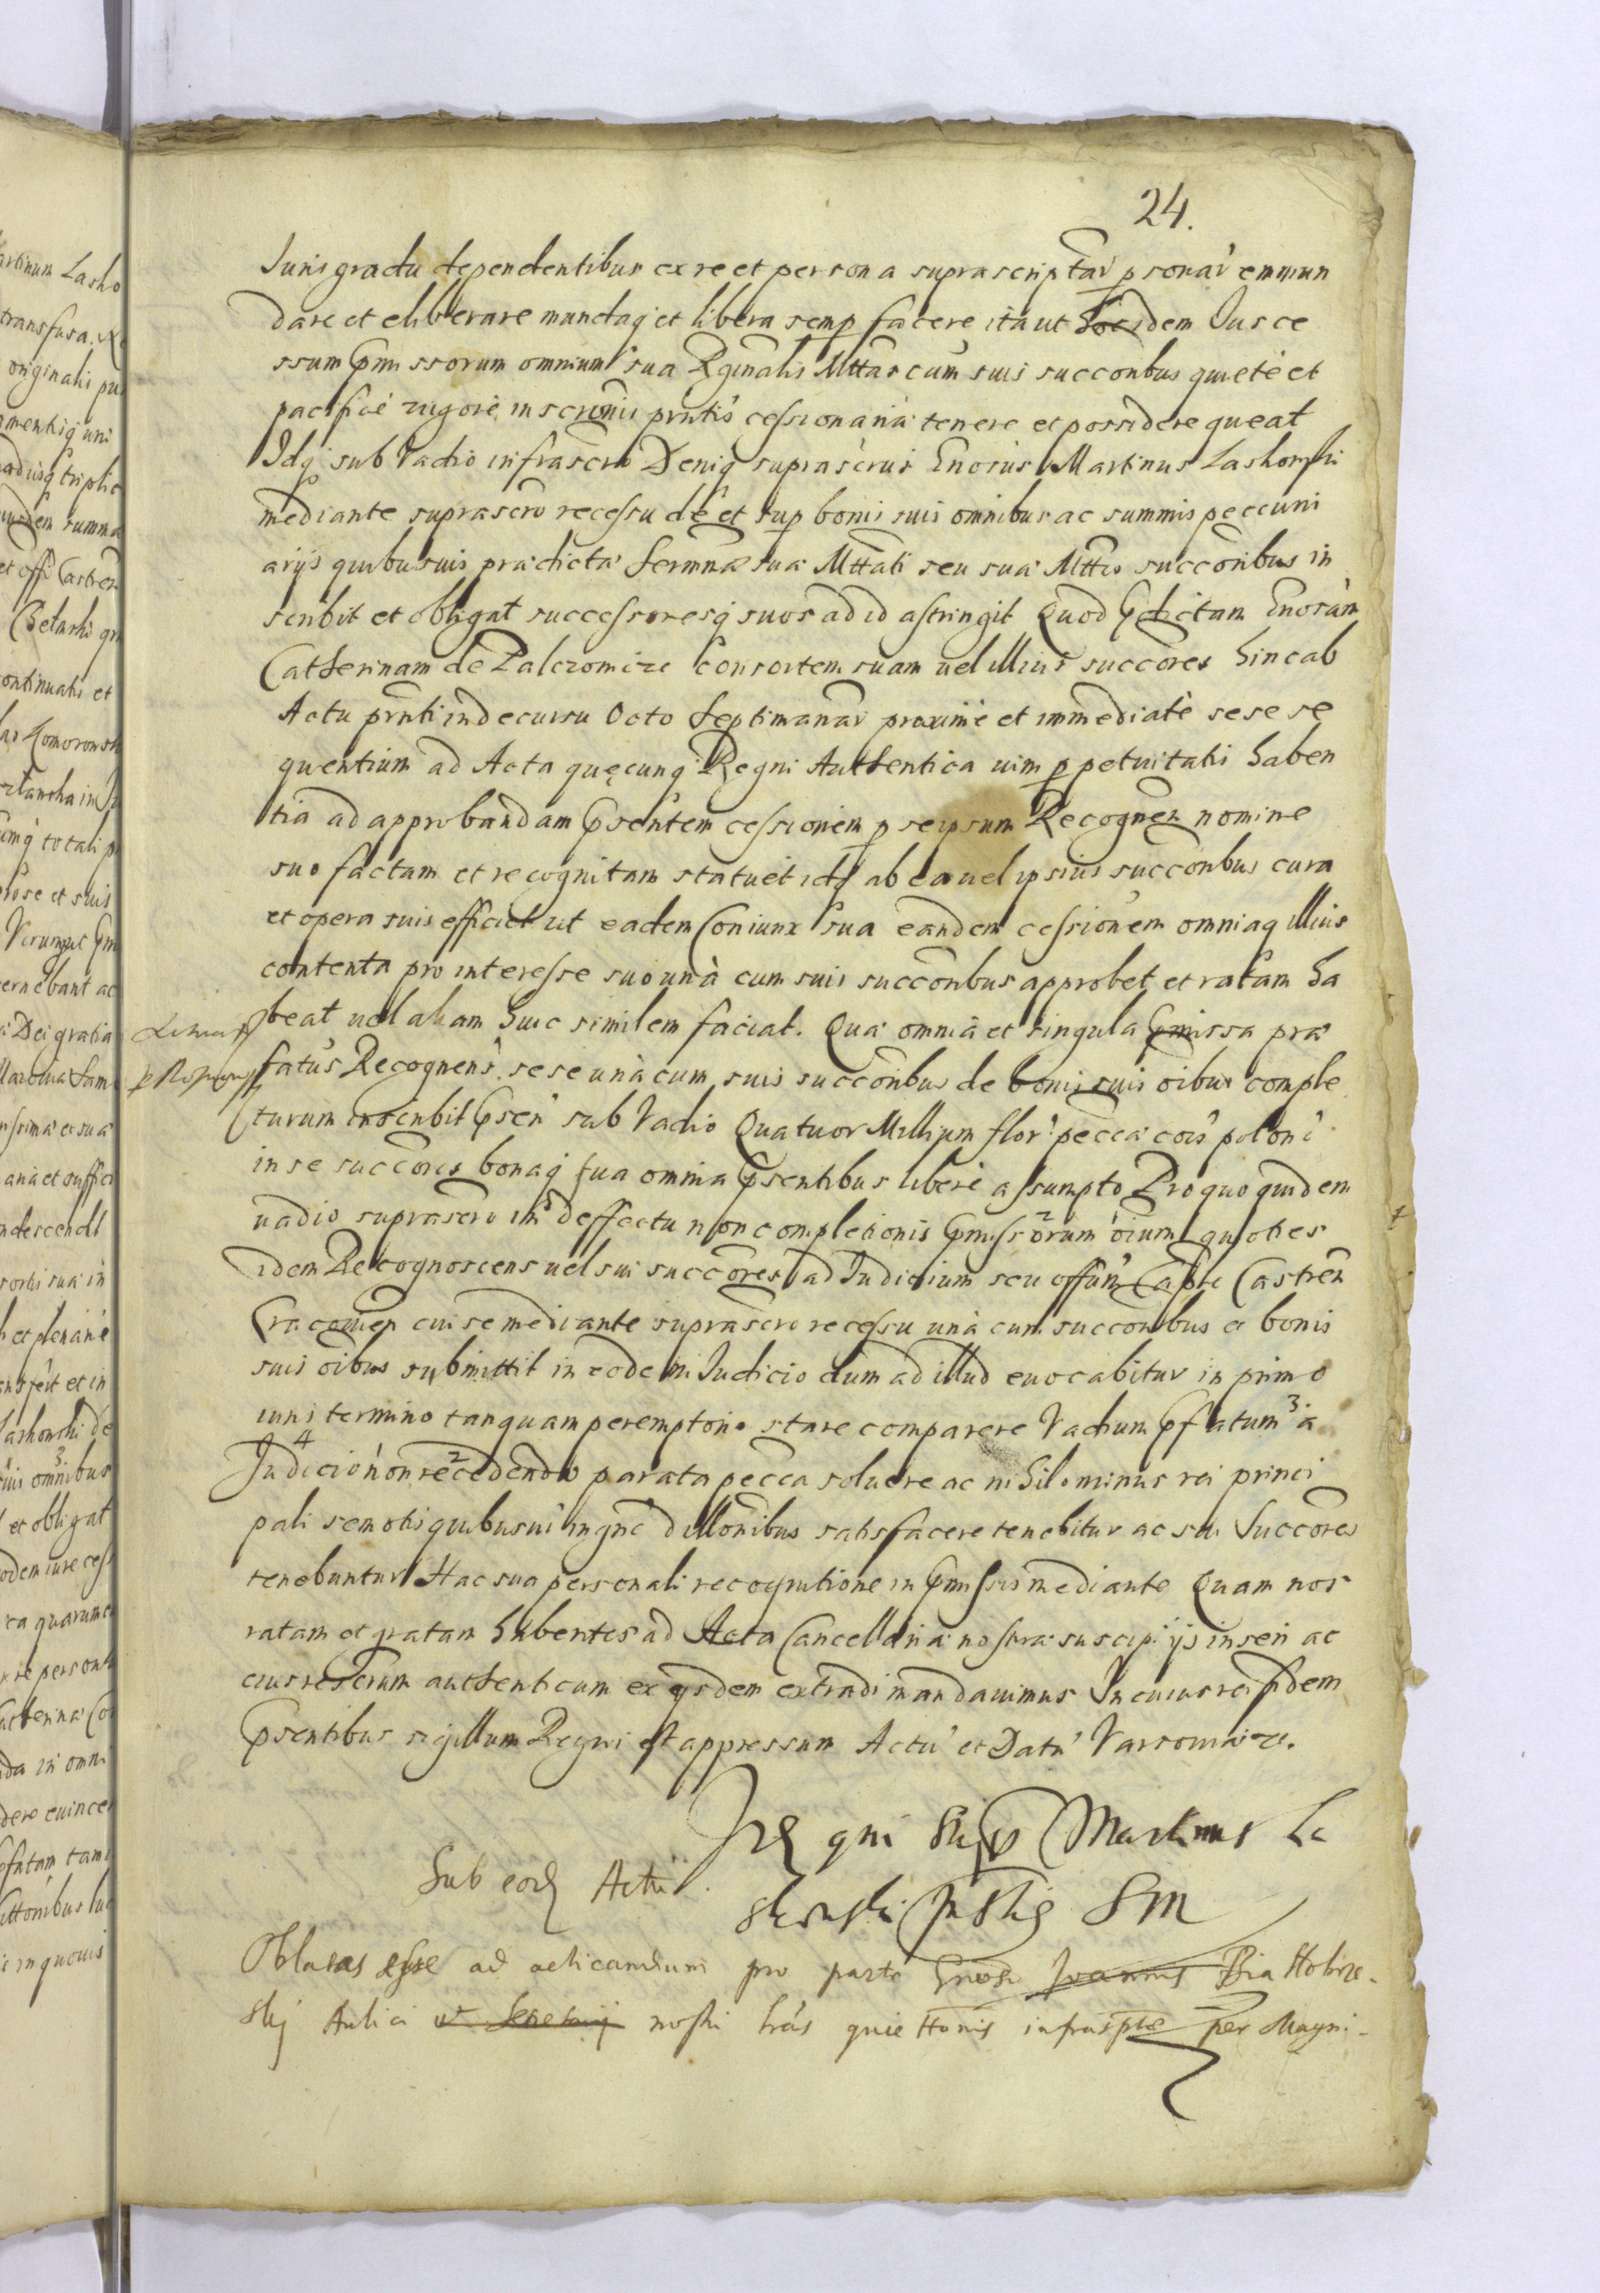 24.
Juris gradu dependentibus ex re et persona suprascriptar̃ psonar̃ emmun
dare et eliberare mundaq̃ et libera semp facere ita ut hocidem Jus ce
ssum pmissorum omnium sua Rginalis Mttas cum suis succoribus quietè et
pacificè uigore inscrõnis pñtis cessionaria tenere et possidere queat
Idq̃ sub Vadio infrascrõ Deniq̃ suprascrus Gnosus Martinus Lashowski
mediante suprascrõ recessu de et sup bonis suis omnibus ac summis peccuni
arijs quibusuis prædictæ Sermnæ suæ Mttati seu suæ Mttis succoribus in
scribit et obligat successoresq̃ suos ad id astringit Quod pdictam Gnosam
Catherinam de Palczowice Consortem suam uel illius succores hinc ab
Actu pñti in decursu Octo Septimanar̃ proximè et immediatè sese se
quentium ad Acta quęcunq̃ Regni Authentica uim ppetuitatis haben
tia ad approbandam psentem cessionem p seipsum Recogñen nomine
suo factam et recognitam statuet idq̃ ab ea uel ipsius succoribus cura
et opera suis efficiet ut eadem Coniunx sua eandem cessionem omniaq̃ illius
contenta pro interesse suo unà cum suis succoribus approbet et ratam ha
beat uel aliam huic similem faciat. Quæ omnia et singula pmissa præ
fatus Recognens sese unà cum suis succoribus de bonis suis oibus comple
turum inscribit psen sub Vadio Quatuor Millium flor: pecca cois polon:
in se succores bonaq̃ sua omnia psentibus liberè assumpto Pro quo quidem
uadio suprascrõ in deffectu non completionis pmissorum 2 oium quoties
idem Recognoscens uel sui succores ad Judicium seu offum Capte Castreñ
Cracouieñ cui se mediante suprascrõ recessu unà cum succoribus et bonis
suis oibus submittit in eodem Judicio dum ad illud euocabitur in primo
iuris termino tanquam peremptorio stare comparere Vadium pfatum 3 a
Judicio 4 non recedendo 2 parata pecca soluere ac nihilominus rei princi
pali semotis quibusuis in gne dillonibus satisfacere tenebitur ac sui Succores
tenebuntur Hac sua personali recognitione in pmissis mediante Quam nos
ratam et gratam habentes ad Acta Cancellariæ nostræ suscipi ijs inseri ac
eius rescrum authenticum ex ijsdem extradi mandauimus In cuius rei fidem
psentibus sigillum Regni est appressum Actũ et Datũ Varsouiæ.
qui supra Martinus La
Sub eod Actu.
Oblatas esse ad acticandum pro parte Gnosi Joannis Białłobrze-
skij Aulici et Secretarij nostri lras quiettonis infrasptæ per Magni-